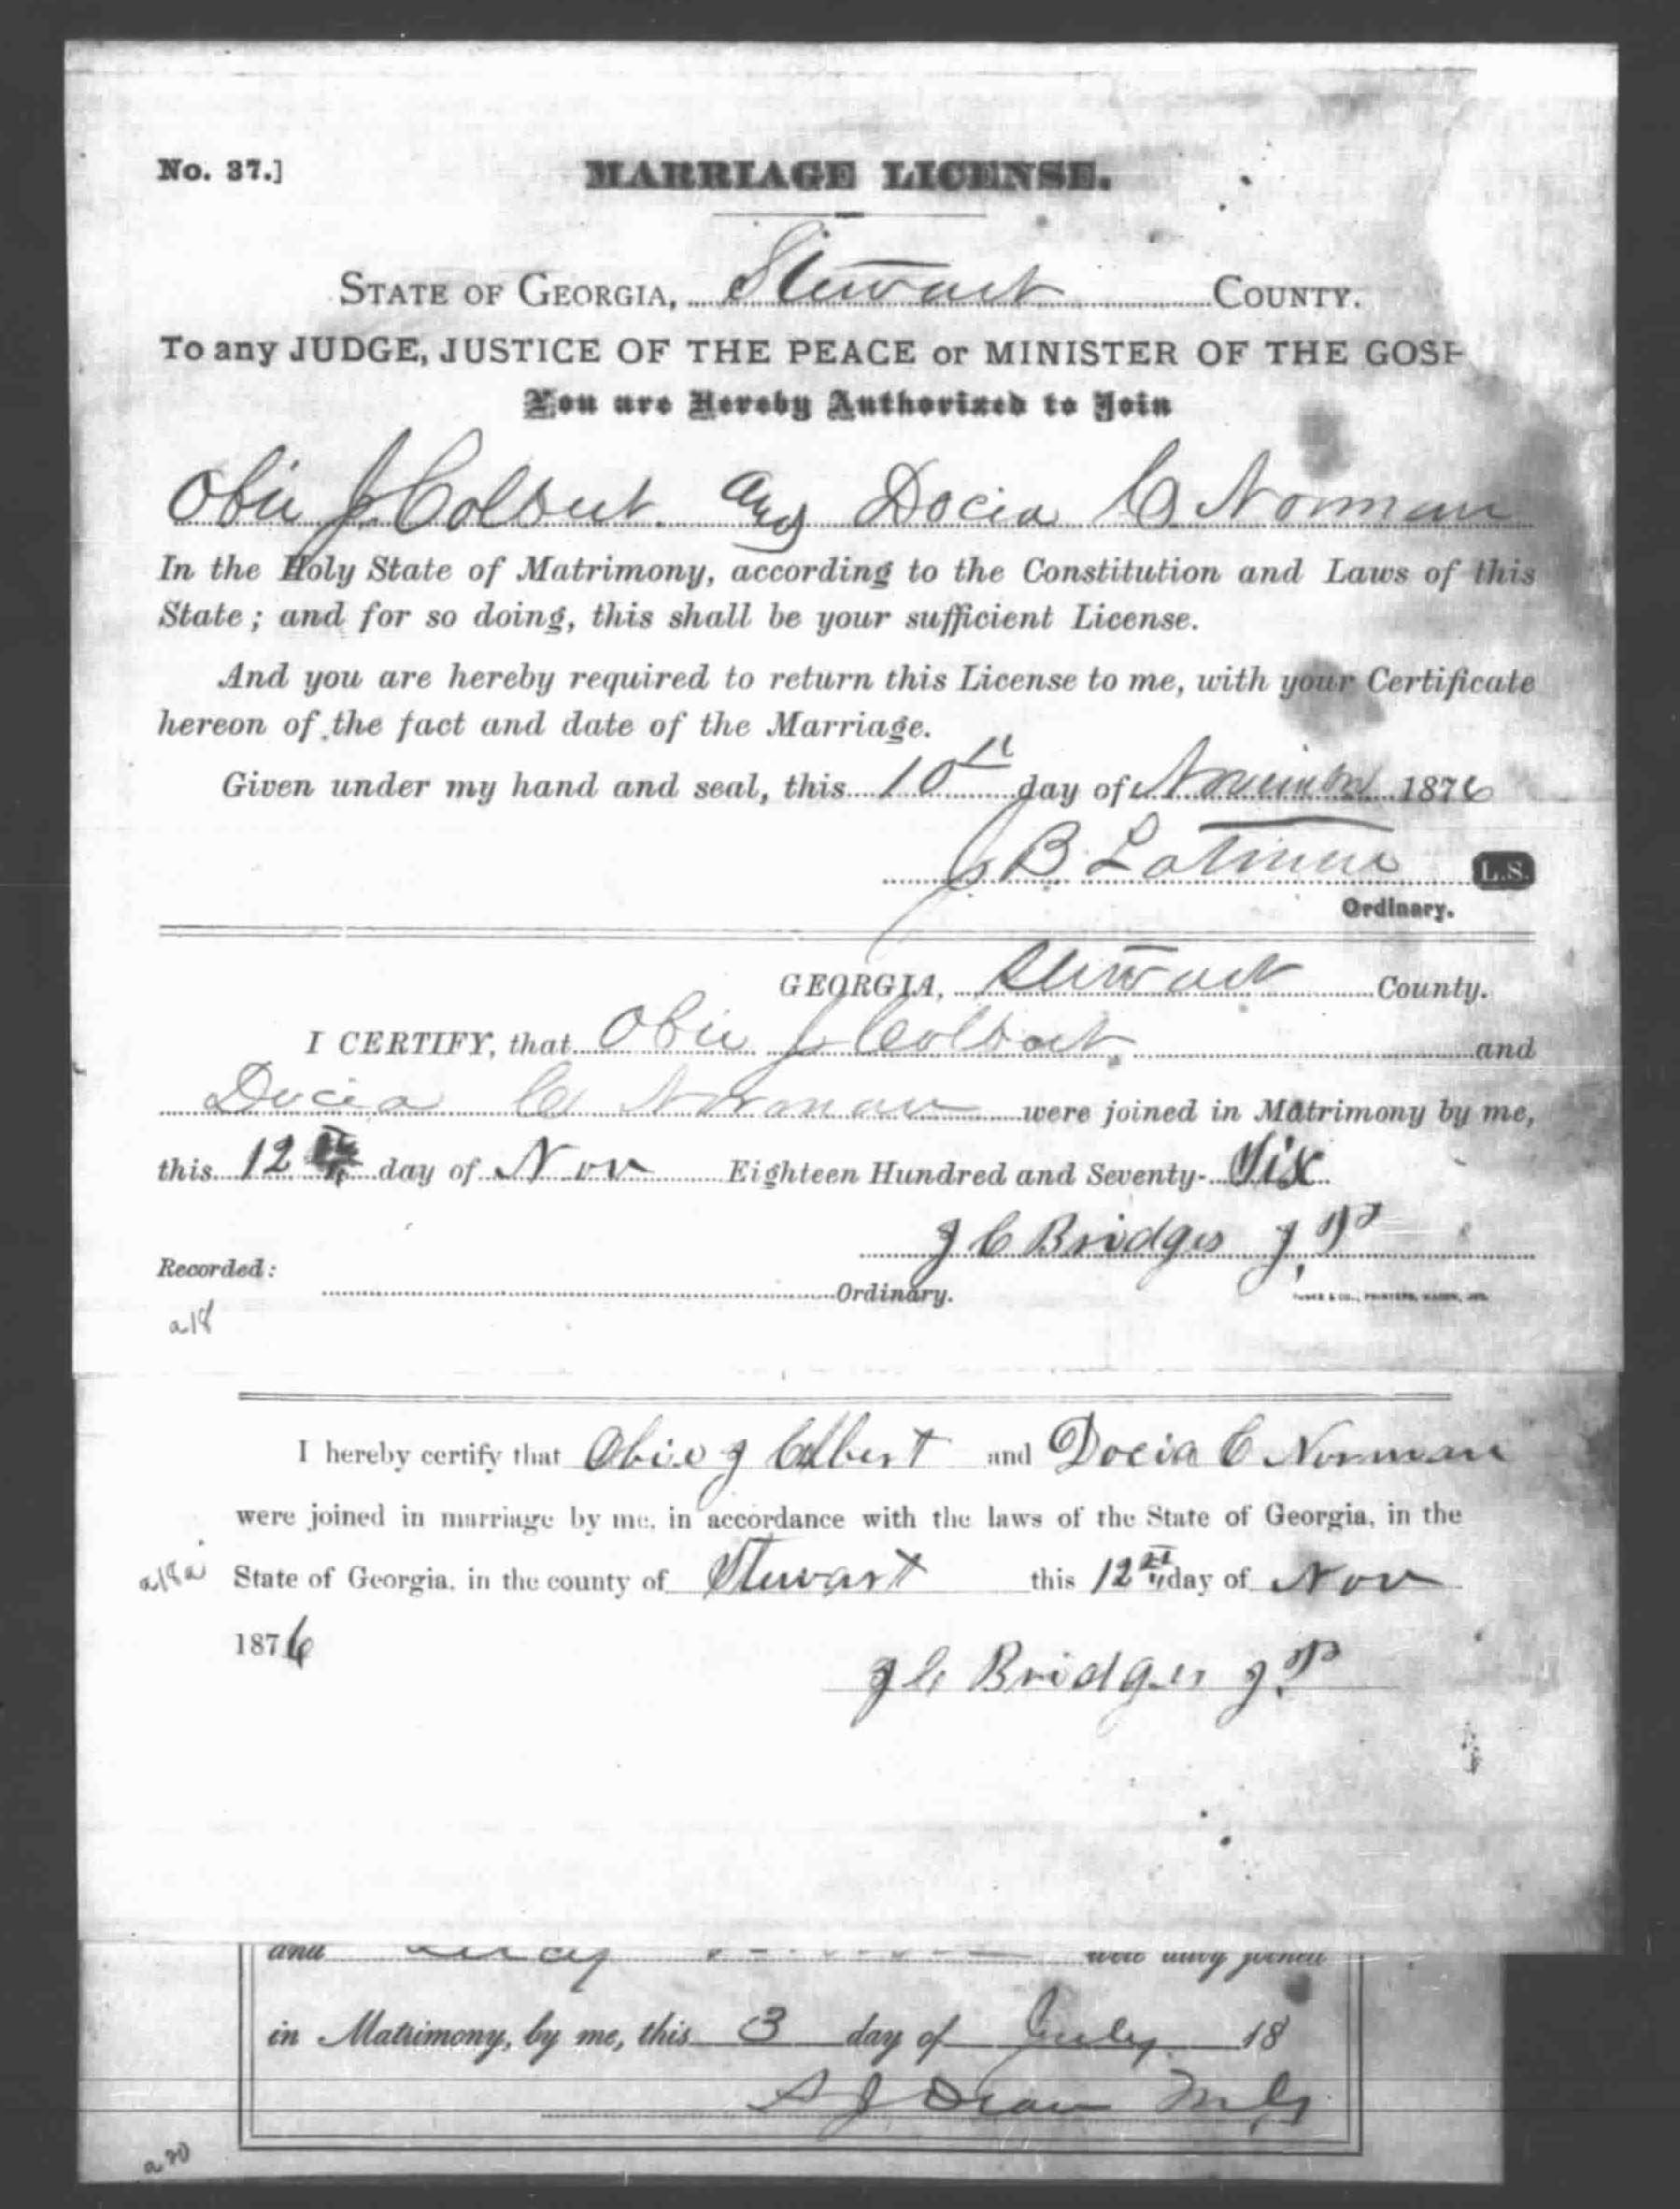 No. 37.]
MARRIAGE LICENSE.
STATE OF GEORGIA, Stewart COUNTY.
To any JUDGE, JUSTICE OF THE PEACE or MINISTER OF THE GOSP
You are Hereby Authorized to Join
Obie J. Colbert. and Docia C Norman
In the Holy State of Matrimony, according to the Constitution and Laws of this
State; and for so doing, this shall be your sufficient License.
And you are hereby required to return this License to me, with your Certificate
hereon of the fact and date of the Marriage.
Given under my hand and seal, this 10th day of November 1876
J B Latimer L.S.
Ordinary.
GEORGIA, Stewart County.
I CERTIFY, that Obie J Colbert and
Docia C Norman were joined in Matrimony by me,
this 12th day of Nov Eighteen Hundred and Seventy-Six
J C Bridges J.P
Recorded:
Ordinary.
& CO., PRINTERS, MACON, GEO.
a18
I hereby certify that Obie J Colbert and Docia C Norman
were joined in marriage by me, in accordance with the laws of the State of Georgia, in the
a18a State of Georgia, in the county of Stewart this 12th day of Nov
1876
J C Bridges J.P
and were duly joined
in Matrimony, by me, this 3 day of July 18
S J Dean M G
a20